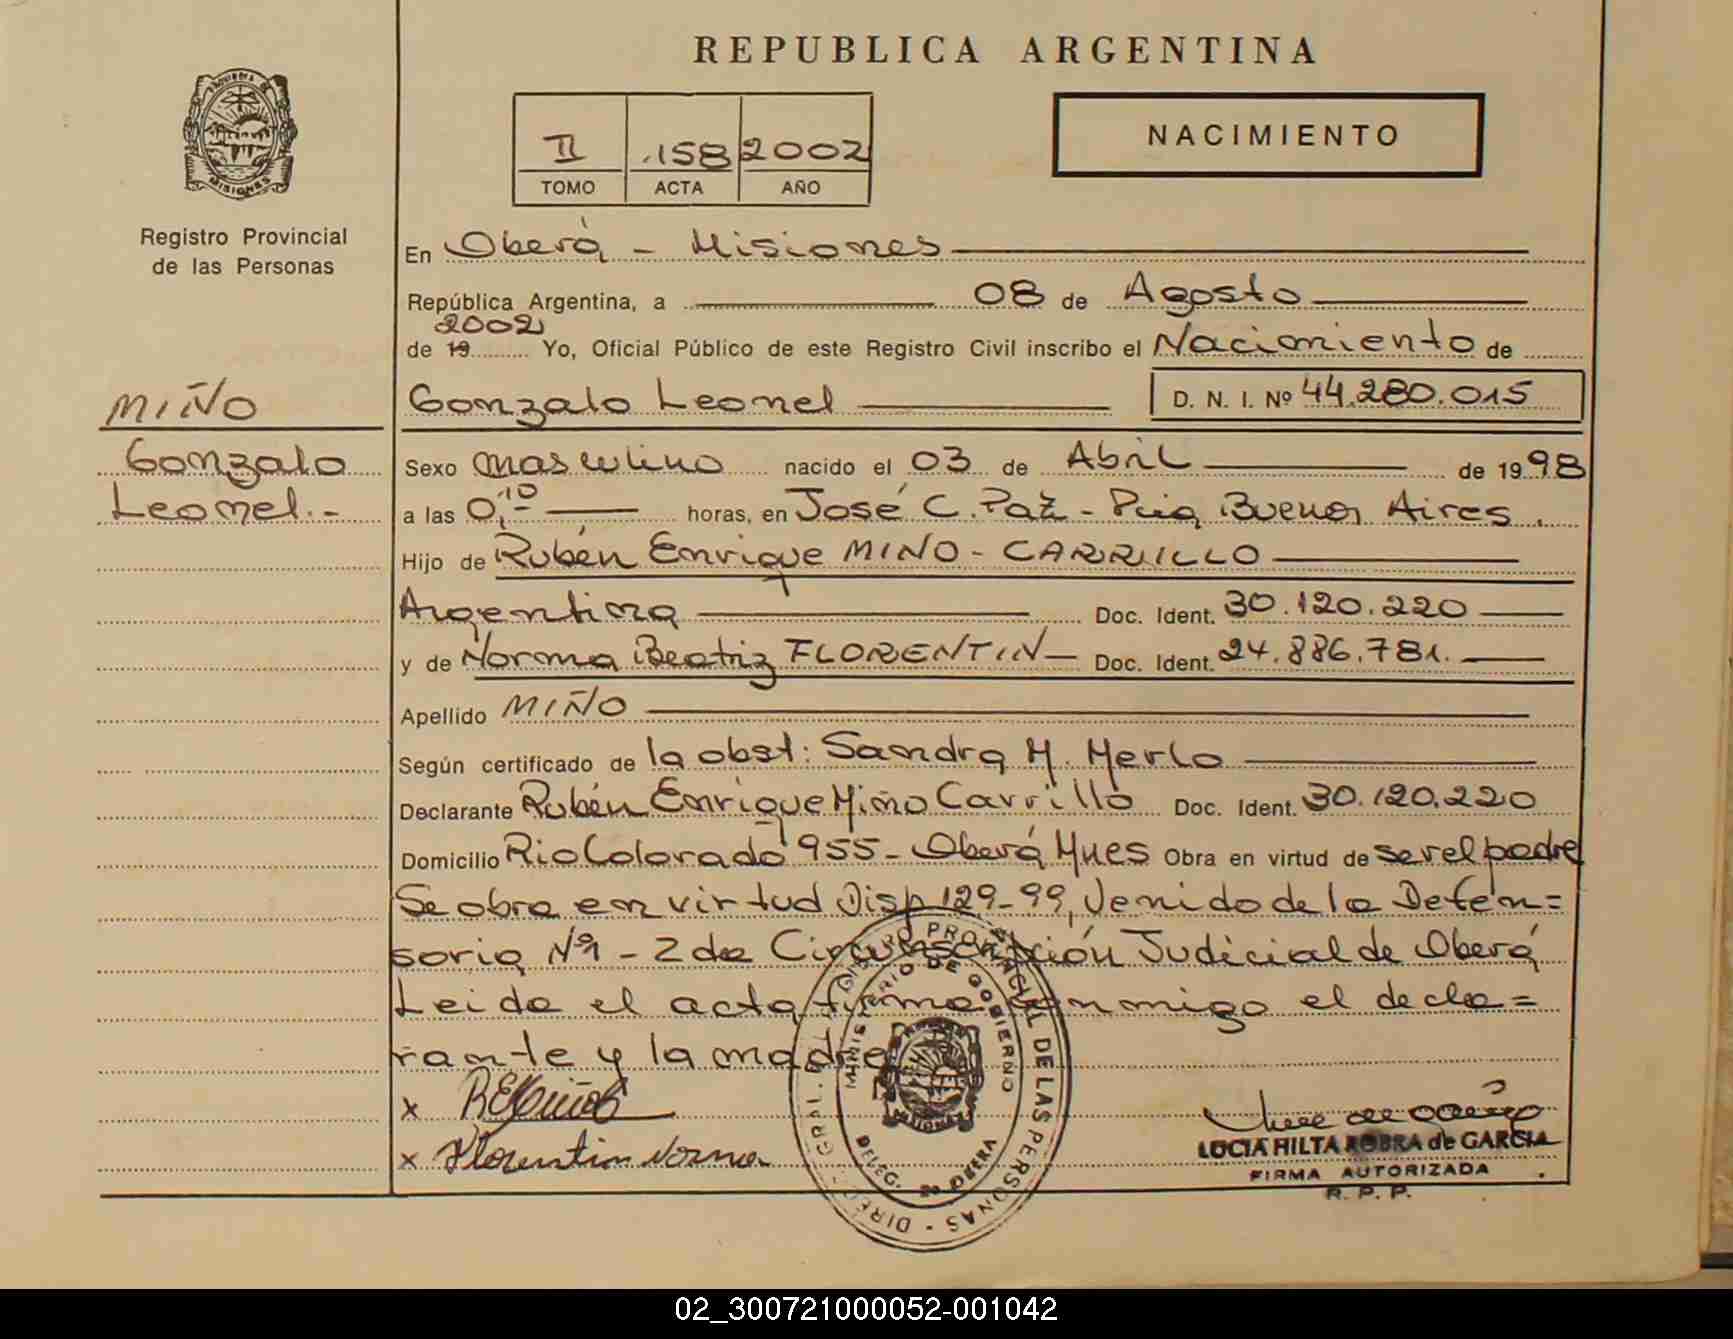 REPUBLICA ARGENTINA
II .158 2002
TOMO ACTA AÑO
NACIMIENTO
MISIONES
Registro Provincial
de las Personas
En Oberá - Misiones
República Argentina, a 08 de Agosto
2002
de 19 Yo, Oficial Público de este Registro Civil inscribo el Nacimiento de
MIÑO
Gonzalo Leonel D. N. I. Nº 44.280.015
Gonzalo
Leonel.-
Sexo masculino nacido el 03 de Abril de 1998
a las 0,10 horas, en José C. Paz - Pcia Buenos Aires.
Hijo de Rubén Enrique MIÑO - CARRILLO
Argentina Doc. Ident. 30.120.220
y de Norma Beatriz FLORENTIN Doc. Ident. 24.886.781.
Apellido MIÑO
Según certificado de la obst: Sandra M. Merlo
Declarante Rubén Enrique Miño Carrillo Doc. Ident. 30.120.220
Domicilio Rio Colorado 955 - Oberá Mnes Obra en virtud de ser el padre
Se obra en virtud Disp 129-99, Venido de la Defen=
soria Nº1 - 2da Circunscripción Judicial de Oberá
Leida el acta firma conmigo el decla=
rante y la madre
x
x Florentin Norma
LUCIA HILTA ROBRA de GARCIA
FIRMA AUTORIZADA
R. P. P.
DIREC. GRAL. DEL REGISTRO PROVINCIAL DE LAS PERSONAS -
MINISTERIO DE GOBIERNO
MISIONES
DELEG. 2a OBERA
02_300721000052-001042